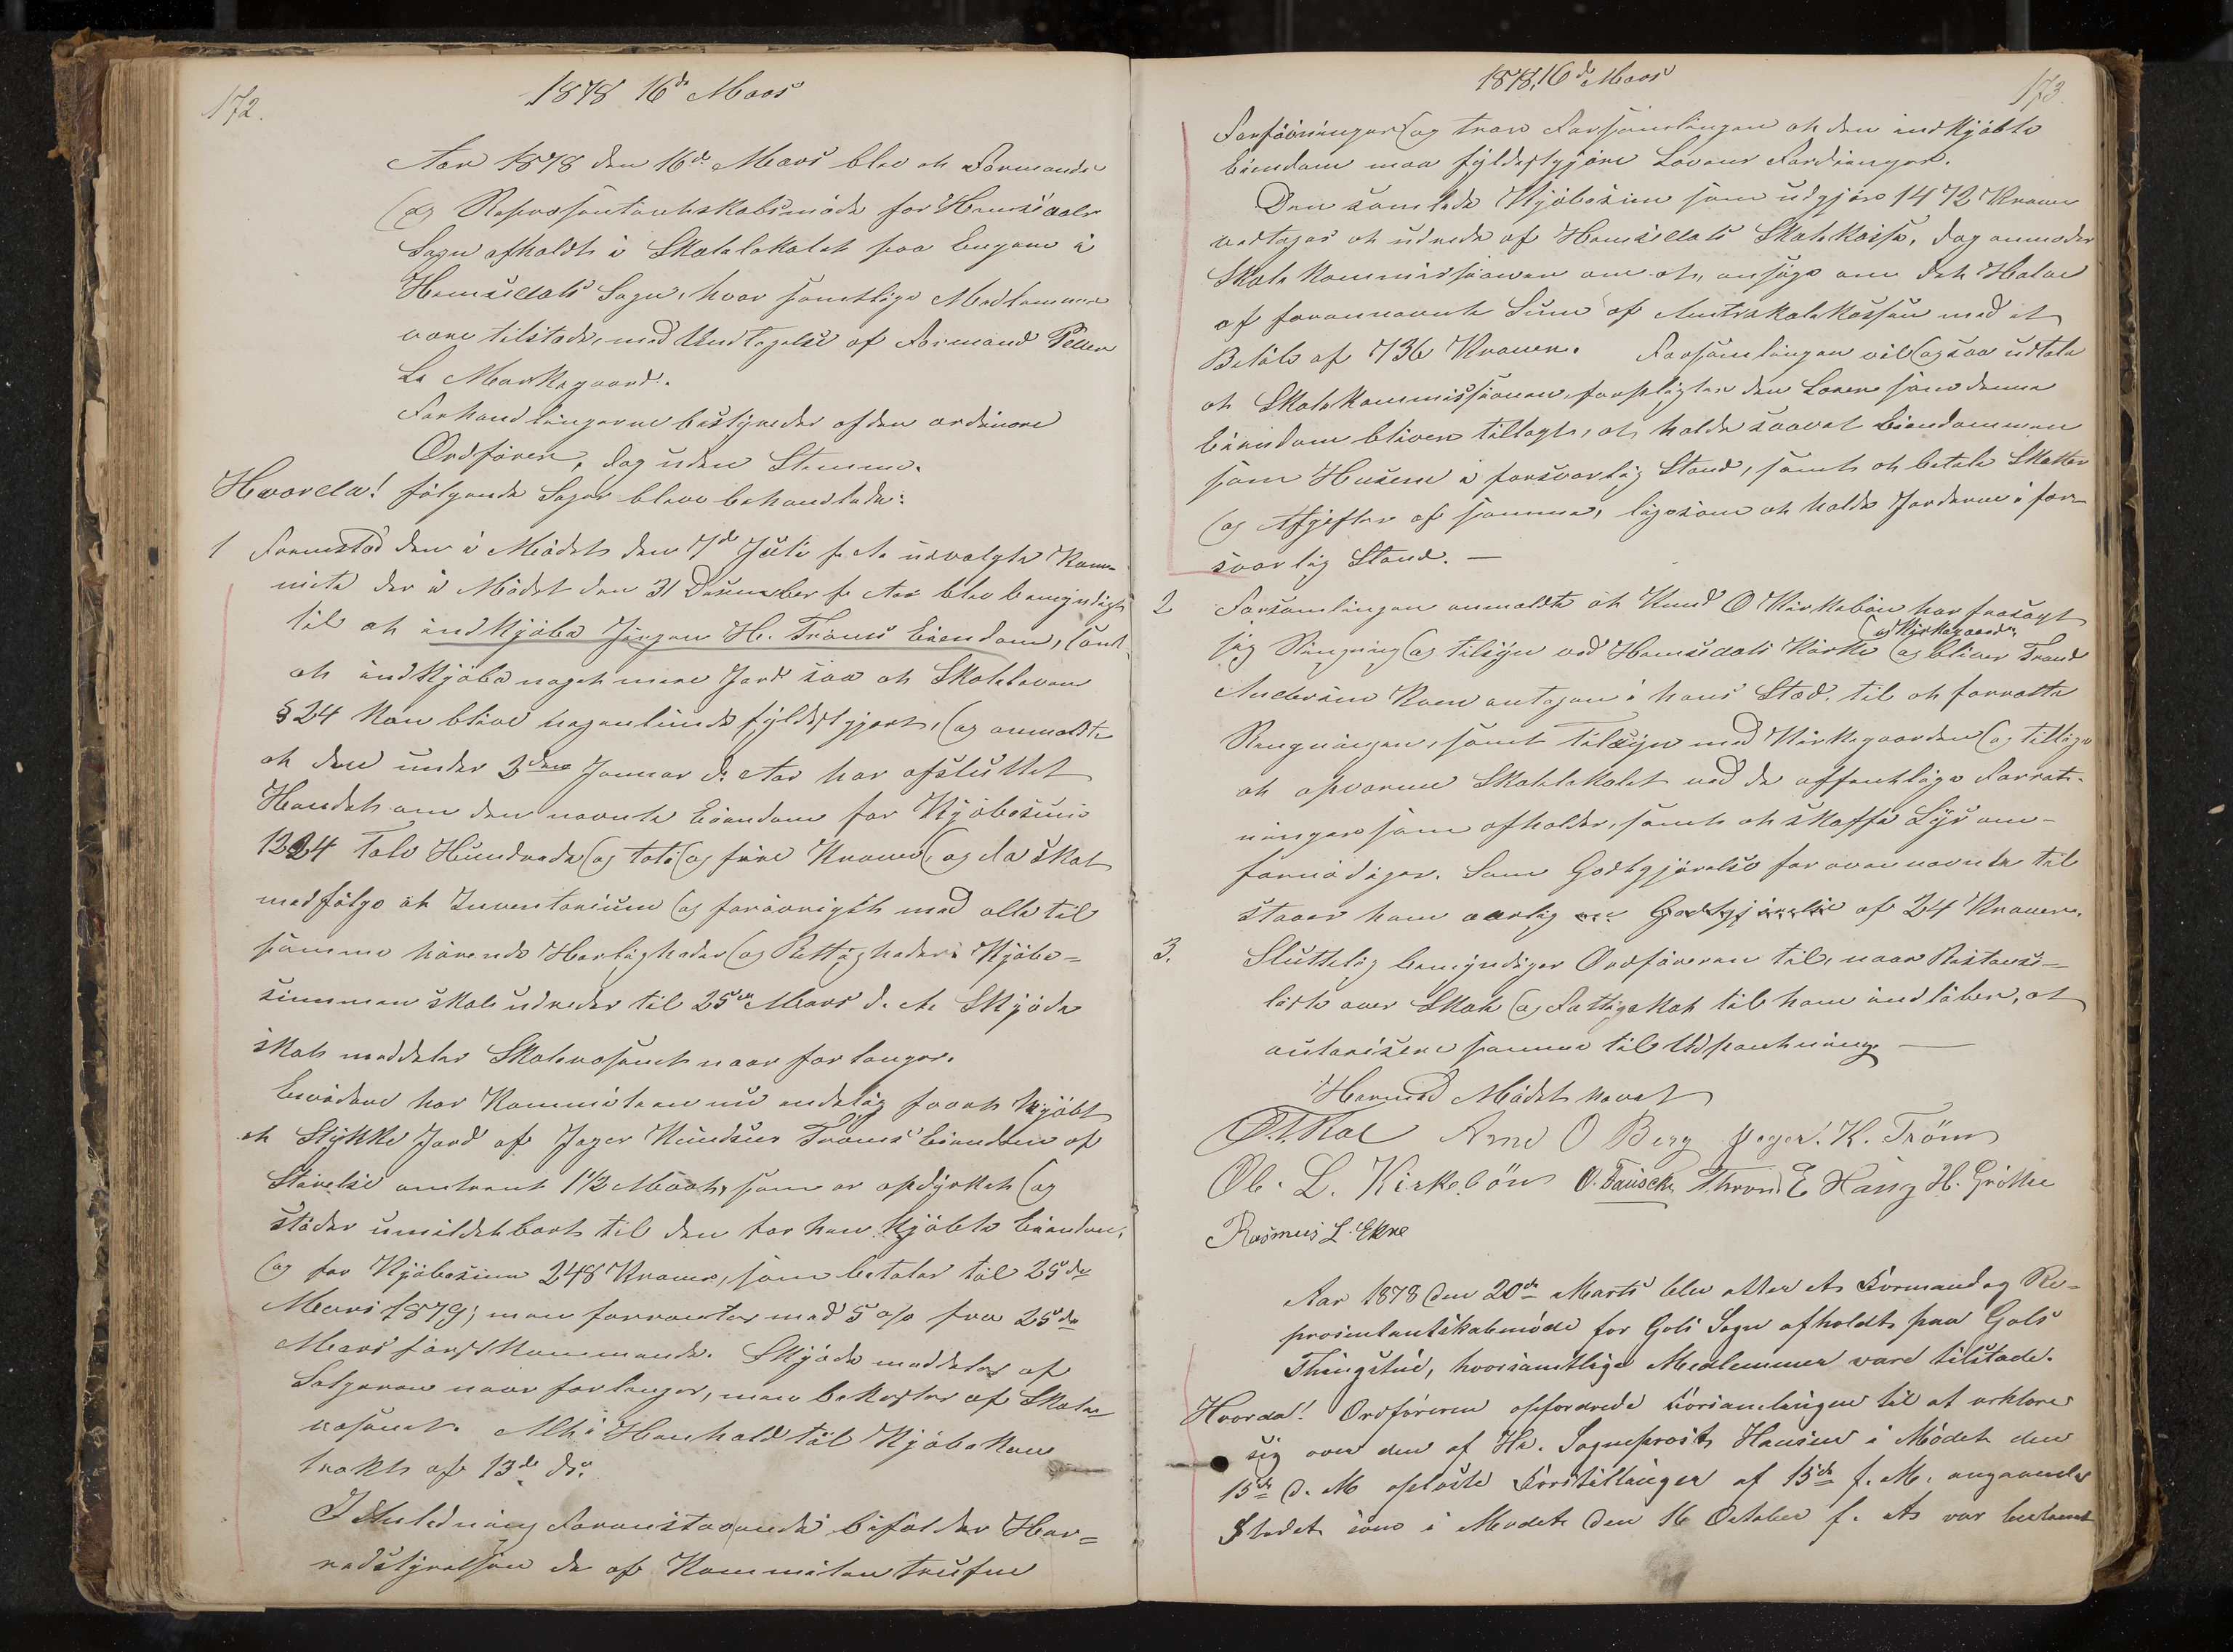 172.
1878 16de Mars
Aar 1878 den 16de Mars blev et Formands
og Repræsentantskabsmøde for Hemsedals
Sogn afholdt i Skolelokalet paa Engene i
Hemsedals Sogn, hvor samtlige Medlemmer
vare tilstede, med Undtagelse af Formand Peller
Ls Markegaard.
Forhandlingerne bestyredes af den ordinære
Ordfører, dog uden Stemme.
Hvorda! følgende Sager bleve behandlede:
1 Fremstod den i Mødet den 7de Juli f. A. udvalgte Kom-
mite der i Mødet den 31 December f. Aar blev bemyndiget
til at indkjøbe Jørgen H. Trøms Eiendom, samt
at indkjøbe noget mere Jord saa at Skoleloven
§ 24 kan blive nogenlunde fyldestgjort, og anmeldte
at den under 2den Januar d. Aar har afsluttet
Handel om den nævnte Eiendom for Kjøbesum
1224 Tolv Hundrede og toti og fire Kroner, og da skal
medfølge et Inventarium og forøvrigt med alle til
samme hørende Herligheder og Rettigheder. Kjøbe-
summen skal udredes til 25de Mars d. A. Skjøde
skal meddeles Skolevæsenet naar forlanges.
Envidere har Kommiteen nu endelig faaet kjøbt
et Stykke Jord af Jeger Knudsens Trøms Eiendom af
Størrelse omtrent 1 1/2 Maal, som er opdyrket og
støder umiddelbart til den før han kjøbte Eiendom,
og for Kjøbesum 248 Kroner, som betales til 25de
Mars 1879; men forrentes med 5 o/o fra 25de
Mars førstkommende. Skjøde meddeles af
Sælgeren naar forlanges, men bekostes af Skole-
væsenet. Alt i Henhold til Kjøbekon
trakt af 13de ds.
I Anledning Foranstaaende bifalder Her-
redstyrelsen de af Kommiteen trufne
1878, 16de Mars
173.
Forføininger og tror Forsamlingen at den indkjøbte
Eiendom maa fyldestgjøre Lovens Fordringer.
Den samlede Kjøbesum som udgjør 1472 Kroner
vedtages at udrede af Hemsedals Skolekasse, dog anmodes
Skolekommissionen om at, ansøge om det Halve
af forannævnte Sum af Amtsskolekassen med et
Beløb af 736 Kroner. Forsamlingen vil ogsaa udtale
at Skolekommissionen, forpligter den Lærer som denne
Eiendom bliver tillagt, at holde saavel Eiendommen
som Husene i forsvarlig Stand, samt at betale Skatter
og Afgifter af samme, ligesom at holde Jorderne i for-
svarlig Stand. —
2 Forsamlingen anmeldte at Knud O Kirkebøen har frasagt
og Kirkegaarden
sig Ringning og tilsyn ved Hemsedals Kirke og bliver Trond
Andersen Roen antagen i hans Sted, til at forrette
Ringningen, samt Tilsyn med Kirkegaarden og tillige
at opvarme Skolelokalet ved de offentlige Forret-
ninger som afholdes, samt at skaffe Lys om-
fornødiges. Som Godtgjørelse for ovennævnte til
staaes ham aarlig en Godtgjørelse af 24 Kroner.
3. Sluttelig bemyndiges Ordføreren til, naar Restance-
liste over Skole og Fattigskat til ham indløber, at
autorisere samme til Udpantning —
Hermed Mødet hævet
O. T. Roe Arne O Berg Jeger. K. Tröm
Ole. L. Kirkebön O. Fauske Thron E Haug H. Gröthe
Rasmus L. Ekre
Aar 1878 den 20de Marts blev atter et Formand og Re-
præsentantskabmøde for Gols Sogn afholdt paa Gols
Thingstue, hvor samtlige Medlemmer vare tilstede.
Hvorda! Ordføreren opfordrede Forsamlingen til at erklære
sig over den af Hr. Sogneprest Hansen i Mødet den
15de d. M oplæste Forstillinger af 15de f. M. angaaende
Stedet som i Mødet den 16 October f. A. var bestemt